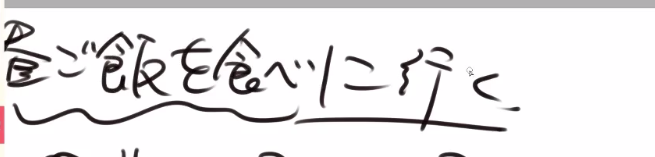 昼ご飯を食べに行く